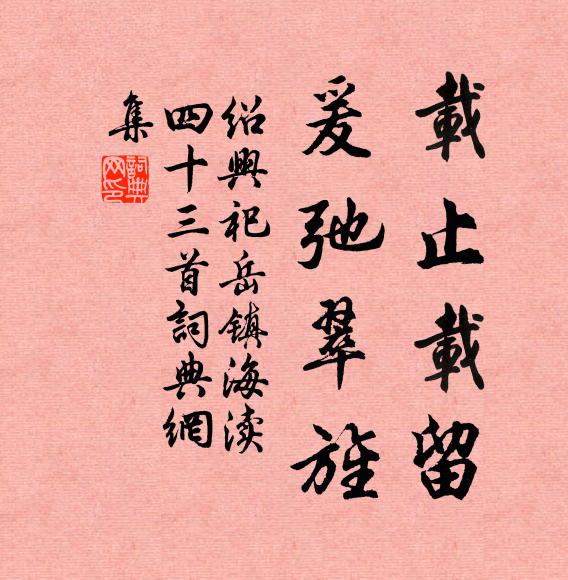 載止載留
爰弛翠旌
绍興祀岳鎮海渎
四十三首詞典網
集
詞典网印